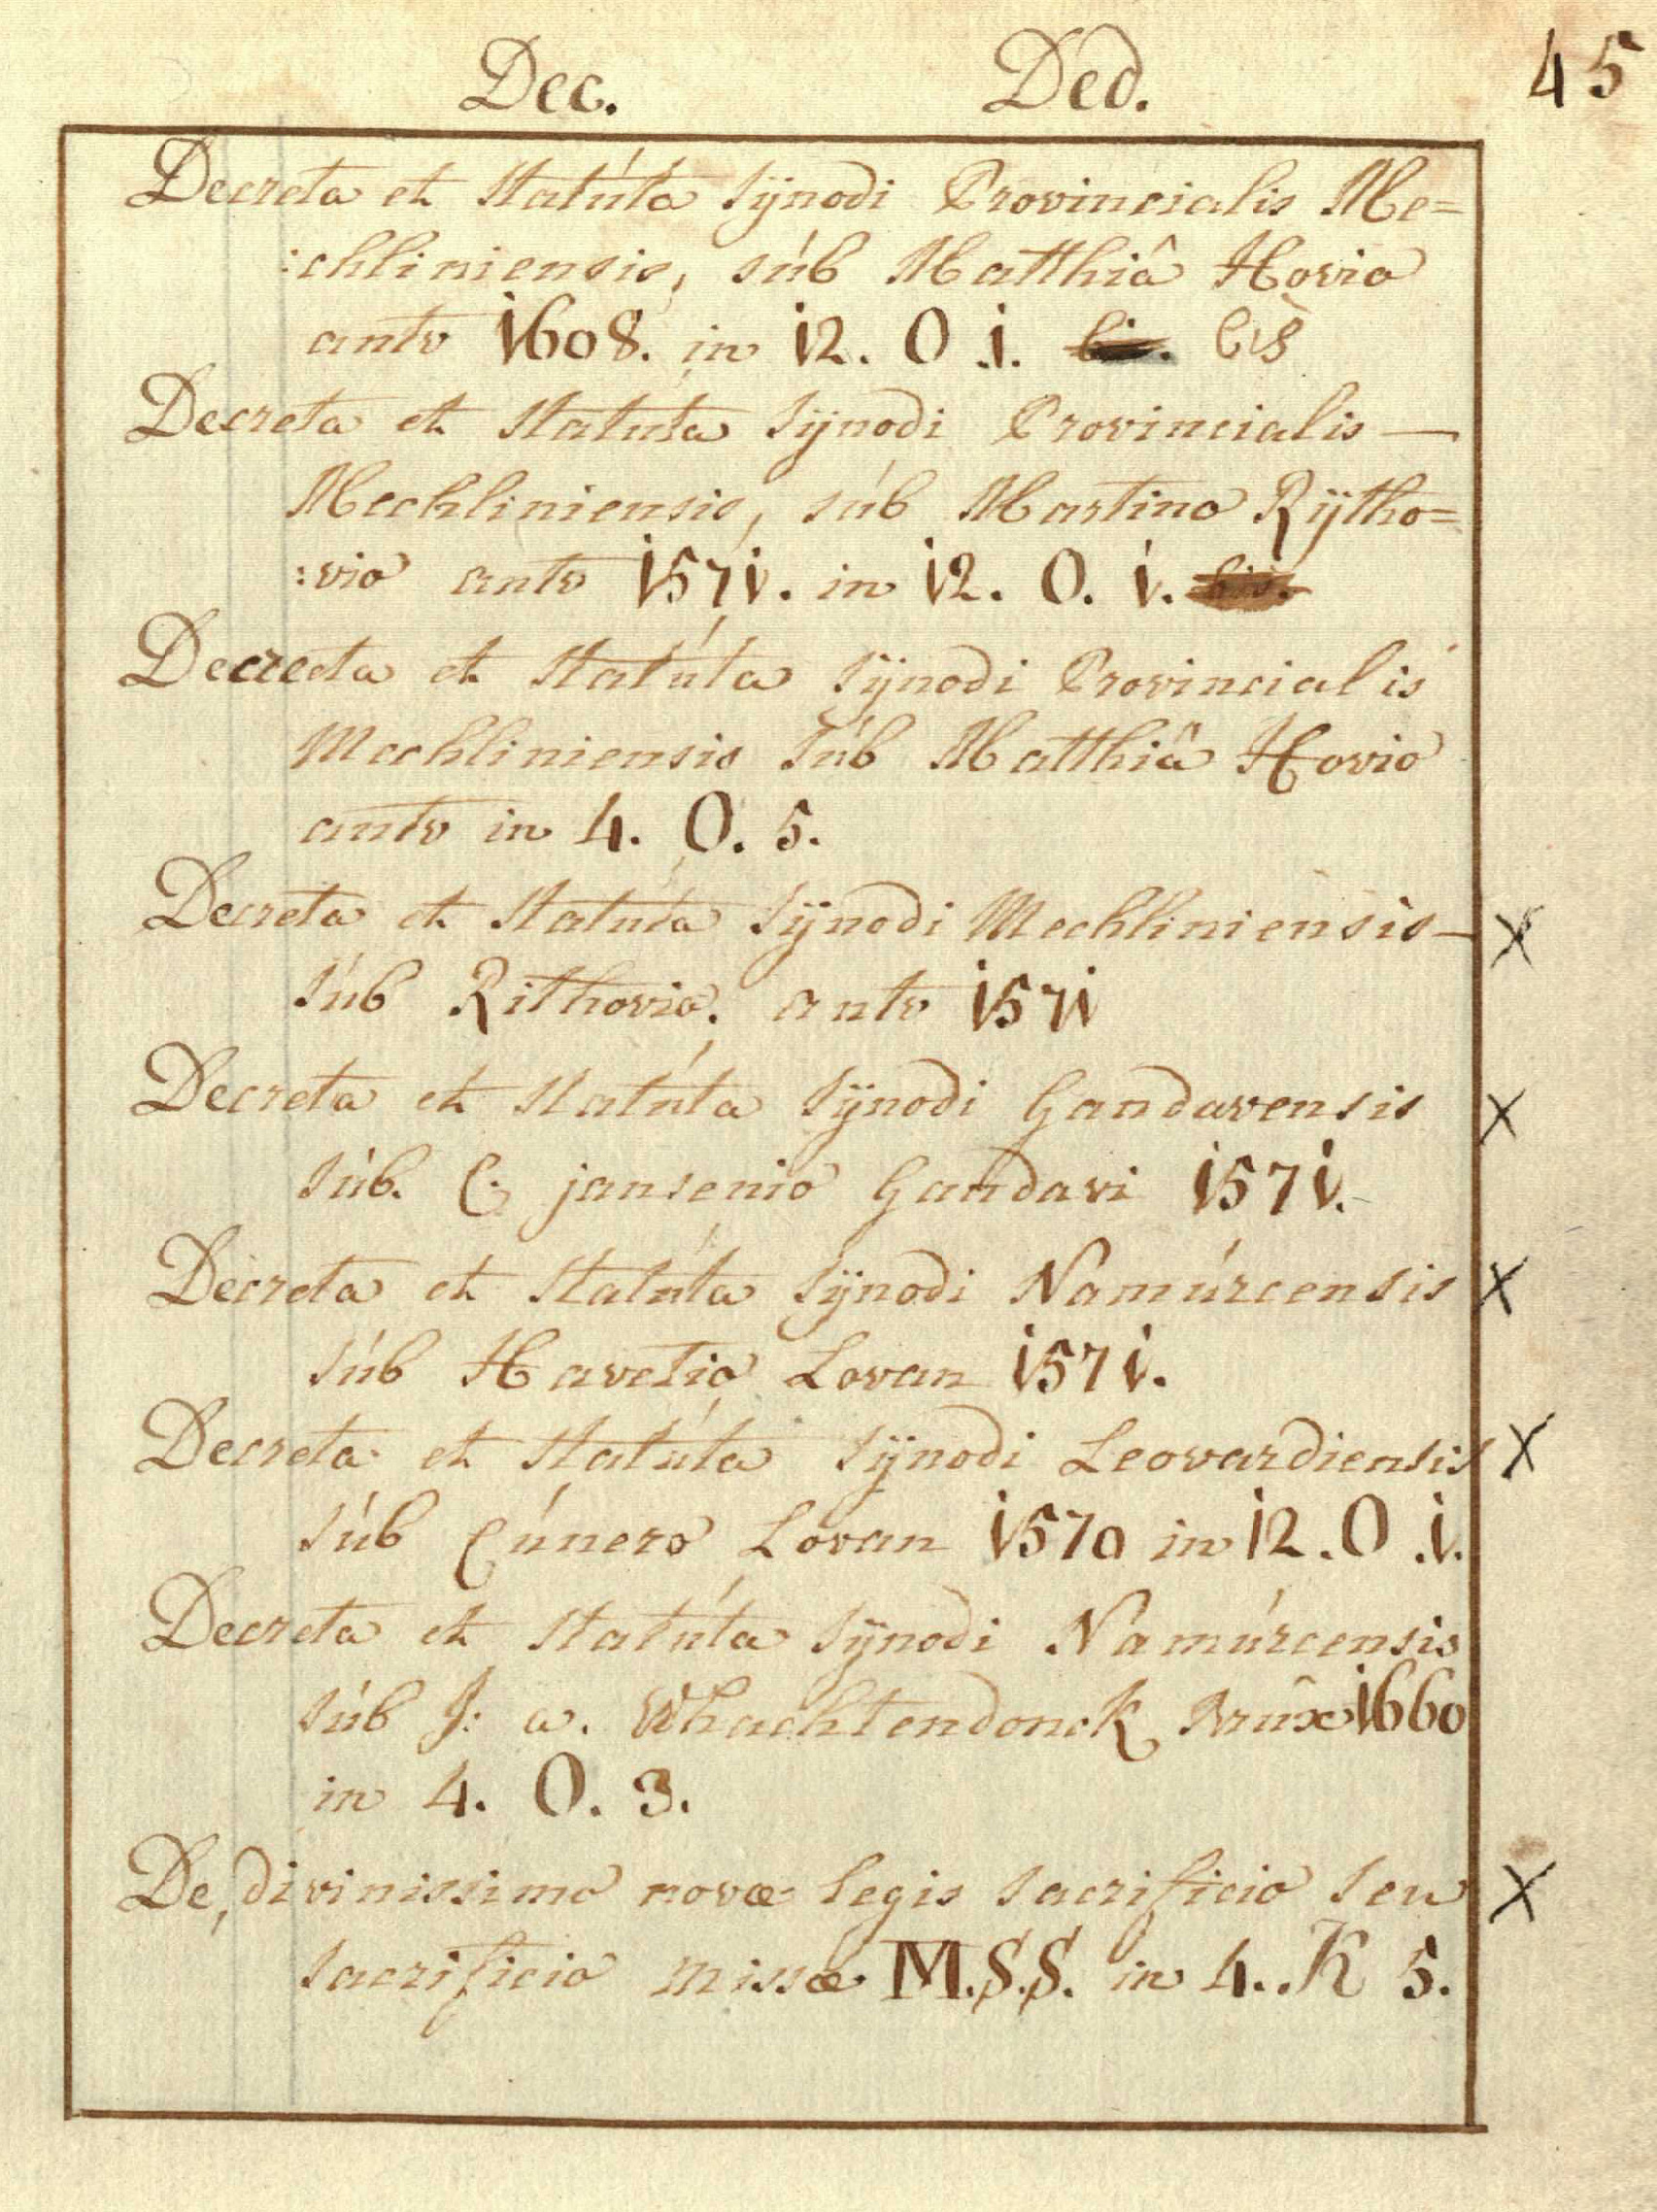 Dec. Ded. 45
Decreta et statúta Sÿnodi Provincialis Me=
:chliniensis, súb Matthiâ Hovio
antv 1608. in 12. O .1. bis
Decreta et statúta Sÿnodi Provincialis —
Mechliniensis, súb Martino Rÿtho=
:vio antv 1571. in 12. O. 1. bis.
Decreta et statúta Sÿnodi Provincialis
Mechliniensis súb Matthiâ Hovio
antv in 4. O. 5.
Decreta et statúta Sÿnodi Mechliniensis — X
súb Rithovio. antv 1571
Decreta et statúta Sÿnodi Gandavensis X
súb. C. jansenio Gandavi 1571.
Decreta et statúta Sÿnodi Namúrcensis X
súb Havetio Lovan 1571.
Decreta et statúta Sÿnodi Leovardiensis X
súb Cúnero Lovan 1570 in 12. O .1.
Decreta et statúta Sÿnodi Namúrcensis
súb J: a. Whachtendonck Brux 1660
in 4. O. 3.
De, divinissimo novæ legis sacrificio seu X
sacrificio missæ M.S.S. in 4.. K 5.